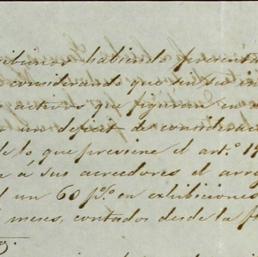 habiendo presenta
considerando que en su
activo que figuran en
un deficit de considerac
de lo que previene el art.º 19
e á sus acreedores el arr
un 60 p% en exhibiciones
meses, contados desde la f